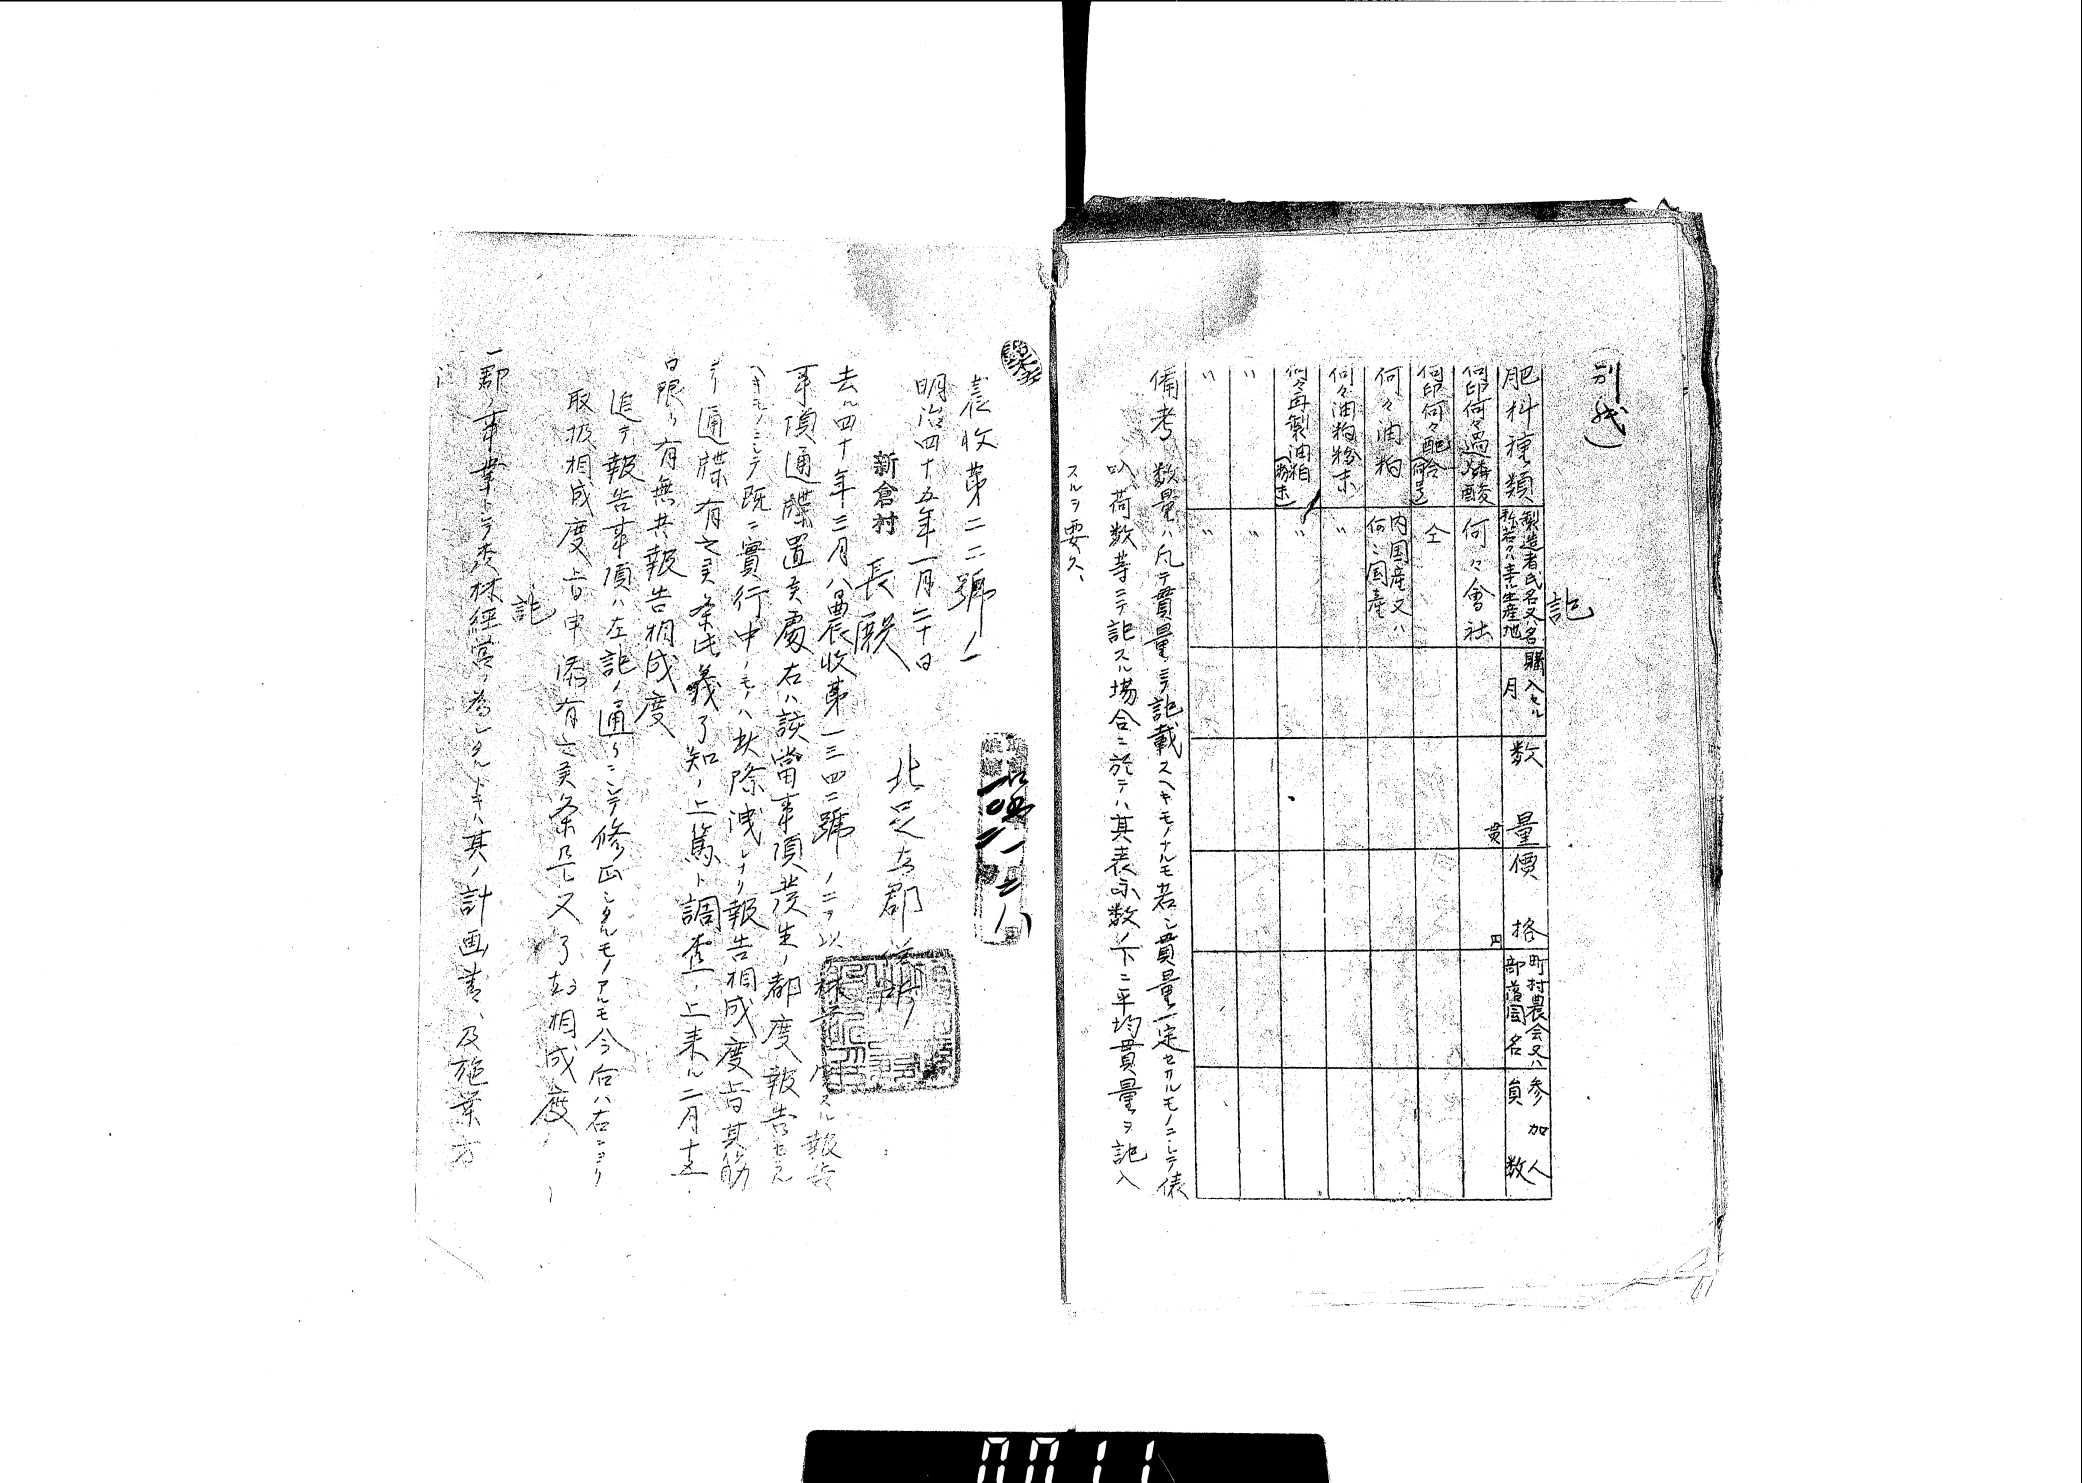 (別紙)
記
肥料種類
製造者氏名又ハ名
称若クハ主ナル生産地
購入セル
月
数量
貫
價格
円
町村農会又ハ
部落団名
参加人
員数
何印何々過燐酸
何々會社
何印何々配合(何号)
仝
何々油粕
内国産又ハ
何々国産
何々油粕粉末
〃
何々再製油粕(粉末)
〃
〃
〃
〃
〃
備考 数量ハ凡テ貫量ニテ記載スヘキモノナルモ若シ貫量一定セサルモノニシテ俵
叺、荷数等ニテ記スル場合ニ於テハ其表示数ノ下ニ平均貫量ヲ記入
スルヲ要ス、
農收第二二號ノ一
明治四十五年一月二十日
北足立郡
新倉村長殿
去ル四十年三月八日農收第一三四二號ノ二ヲ以 報告
事項通牒置候處右ハ該當事項発生ノ都度報告セラル
ヘキモノニシテ既ニ實行中ノモノハ此際洩レナク報告相成度旨其筋
ヨリ通牒有之候条此義了知ノ上篤ト調査ノ上来ル二月十五
日限リ有無共報告相成度
追テ報告事項ハ左記ノ通リニシテ修正シタルモノアルモ今合ハ右ニヨリ
取扱相成度旨申添有之候条是又了知相成度
記
一郡ノ事業トシテ森林經営ヲ為シタルトキハ其ノ計画書、及施業方
0011